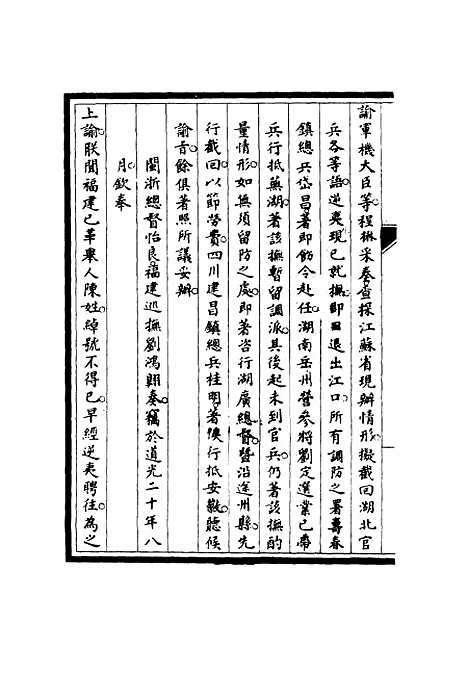 諭軍機大臣等程楙采奏查探江蘇省現辦情形擬截回湖北官
兵各等語逆夷現已就撫即日退出江口所有調防之署壽春
鎮總兵岱昌著即飭令赴任湖南岳州營參將劉定選業已帶
兵行抵蕪湖著該撫暫留調派其後起未到官兵仍著該撫酌
量情形如無須留防之處即著咨行湖廣總督暨沿途州縣先
行截回以節勞費四川建昌鎮總兵桂明著俟行抵安徽聽候
諭旨餘俱著照所議妥辦
閩浙總督怡良福建巡撫劉鴻翺奏竊於道光二十年八
月欽奉
上諭朕聞福建已革舉人陳姓綽號不得已早經逆夷聘往為之